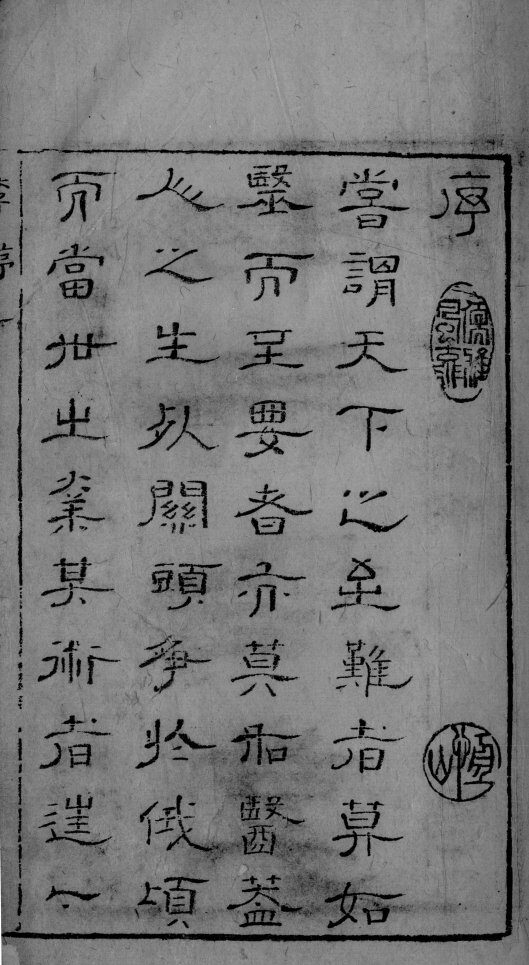 序
嘗謂天下之至難者莫如
毉而至要者亦莫如醫蓋
人之生死關頭爭於俄頃
而當世之業其術者迬〻